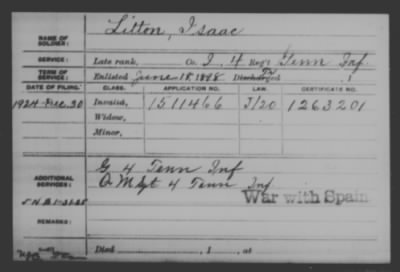 NAME OF SOLDIER: Litton, Isaac
SERVICE: Late rank, Co. I, 4 Reg't Tenn Inf.
TERM OF SERVICE: Enlisted June 18, 1898 Discharged , 1
DATE OF FILING. CLASS. APPLICATION NO. LAW. CERTIFICATE NO.
1924 Dec. 30 Invalid, 1511466 J/20 1263201
Widow,
Minor,
ADDITIONAL SERVICES: G 4 Tenn Inf
Q M Sgt 4 Tenn Inf
War with Spain
REMARKS:
Died , 1 , at